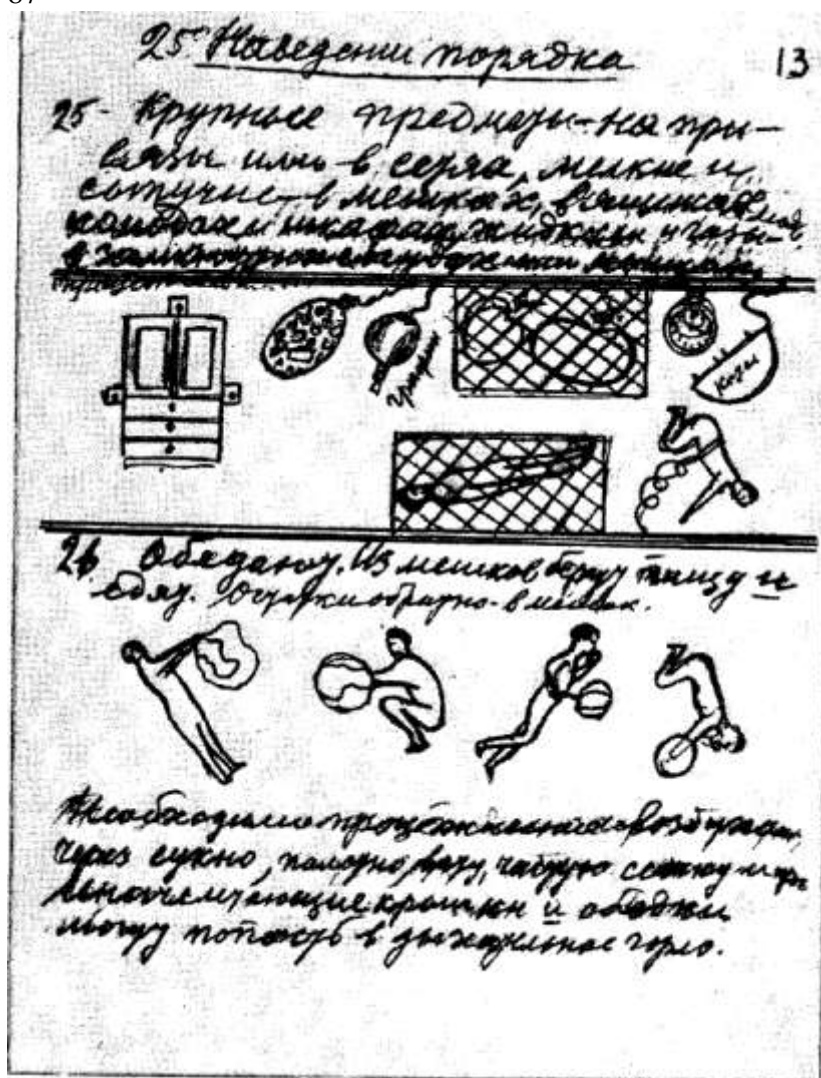 25 Наведение порядка
13
25 - Крупные предметы - на при-
вязи или в сетях, мелкие и
сыпучие - в мешках, ящиках,
шкафах, жидкие и газы -
в
Графин
Козы
26 Обедают. Из мешков берут пищу и
едят. Огрызки обратно - в мешок.
Необходимо процеживание воздуха
через сукно, полотно, вату, частую сетку и
крошки и объедки
могут попасть в дыхательное горло.